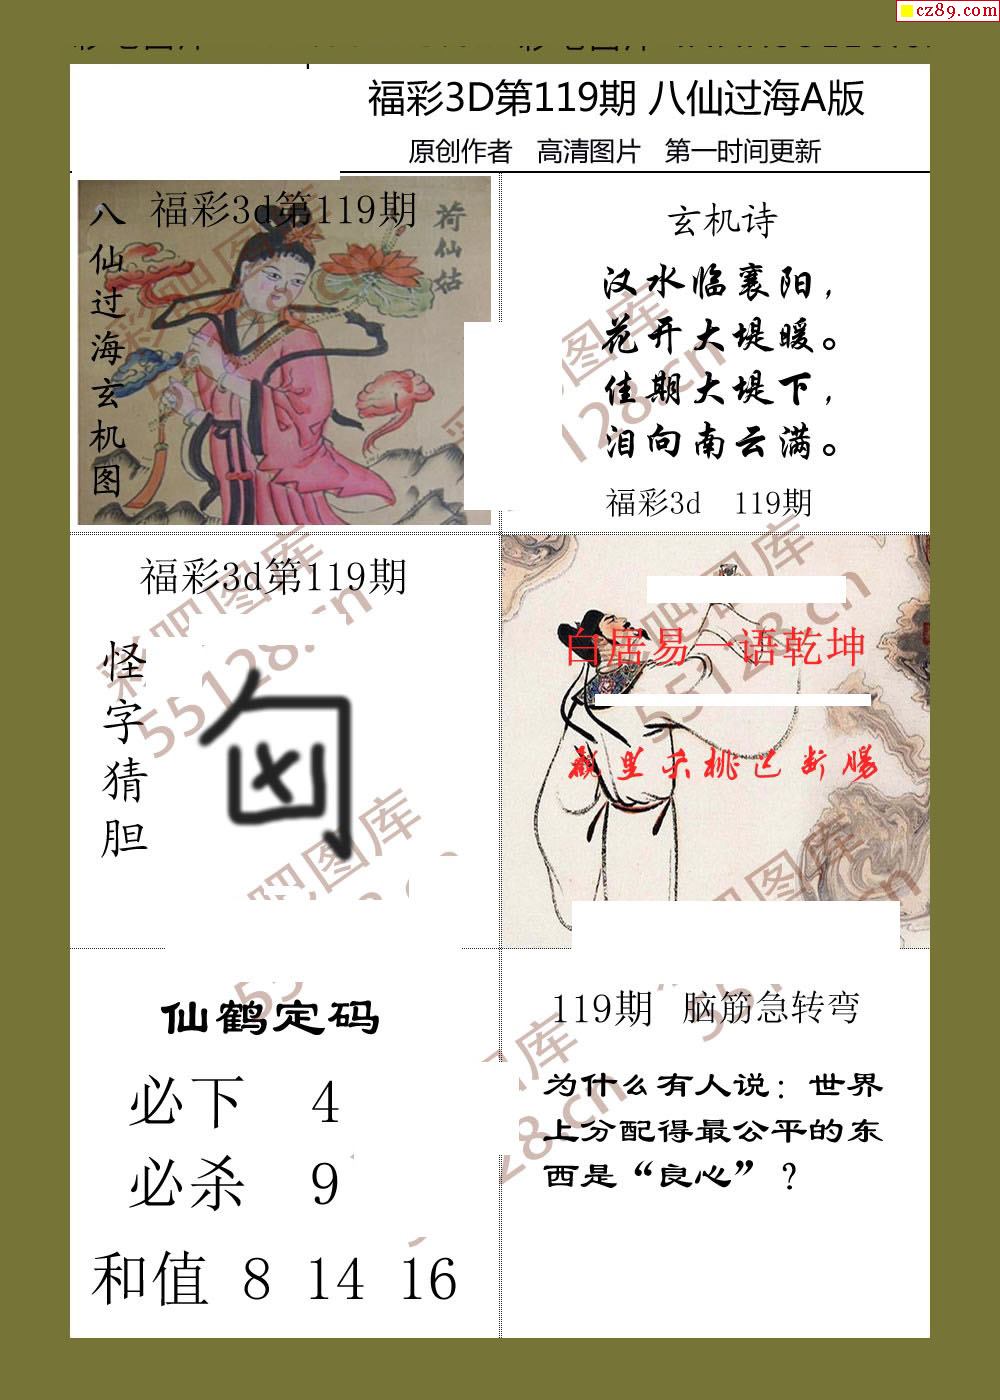 cz89.com
福彩3D第119期 八仙过海A版
原创作者 高清图片 第一时间更新
福彩3d第119期
荷仙姑
八仙过海玄机图
玄机诗
汉水临襄阳，
花开大堤暖。
佳期大堤下，
泪向南云满。
福彩3d 119期
福彩3d第119期
怪字猜胆
白居易一语乾坤
仙鹤定码
必下 4
必杀 9
和值 8 14 16
119期 脑筋急转弯
为什么有人说：世界
上分配得最公平的东
西是“良心”？
彩吧图库
55128.cn